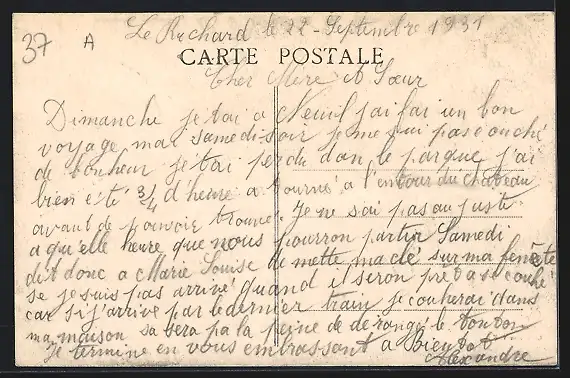 37 A
Le Ruchard le 22 - Septembre 1931
CARTE POSTALE
Cher Mère et Sœur
Dimanche je tai a Neuil j'ai fai un bon
voyage mai samedi soir je me sui pas couché
de bonheur je tai perdu dan le parque j'ai
bien été 3/4 d'heure a tourné a l'entour du chateau
avant de pouvoir trouve. Je ne sai pas au juste
a qu'elle heure que nous pourron partir Samedi
dit donc a Marie Louise de mette ma clé sur ma fenête
se je suis pas arrivé quand il seron prêt a se couché
car si j'arrive par le dernier train je coucherai dans
ma maison sa sera pa la peine de derangé le tonton
Je termine en vous embrassant a Bientot
Alexandre